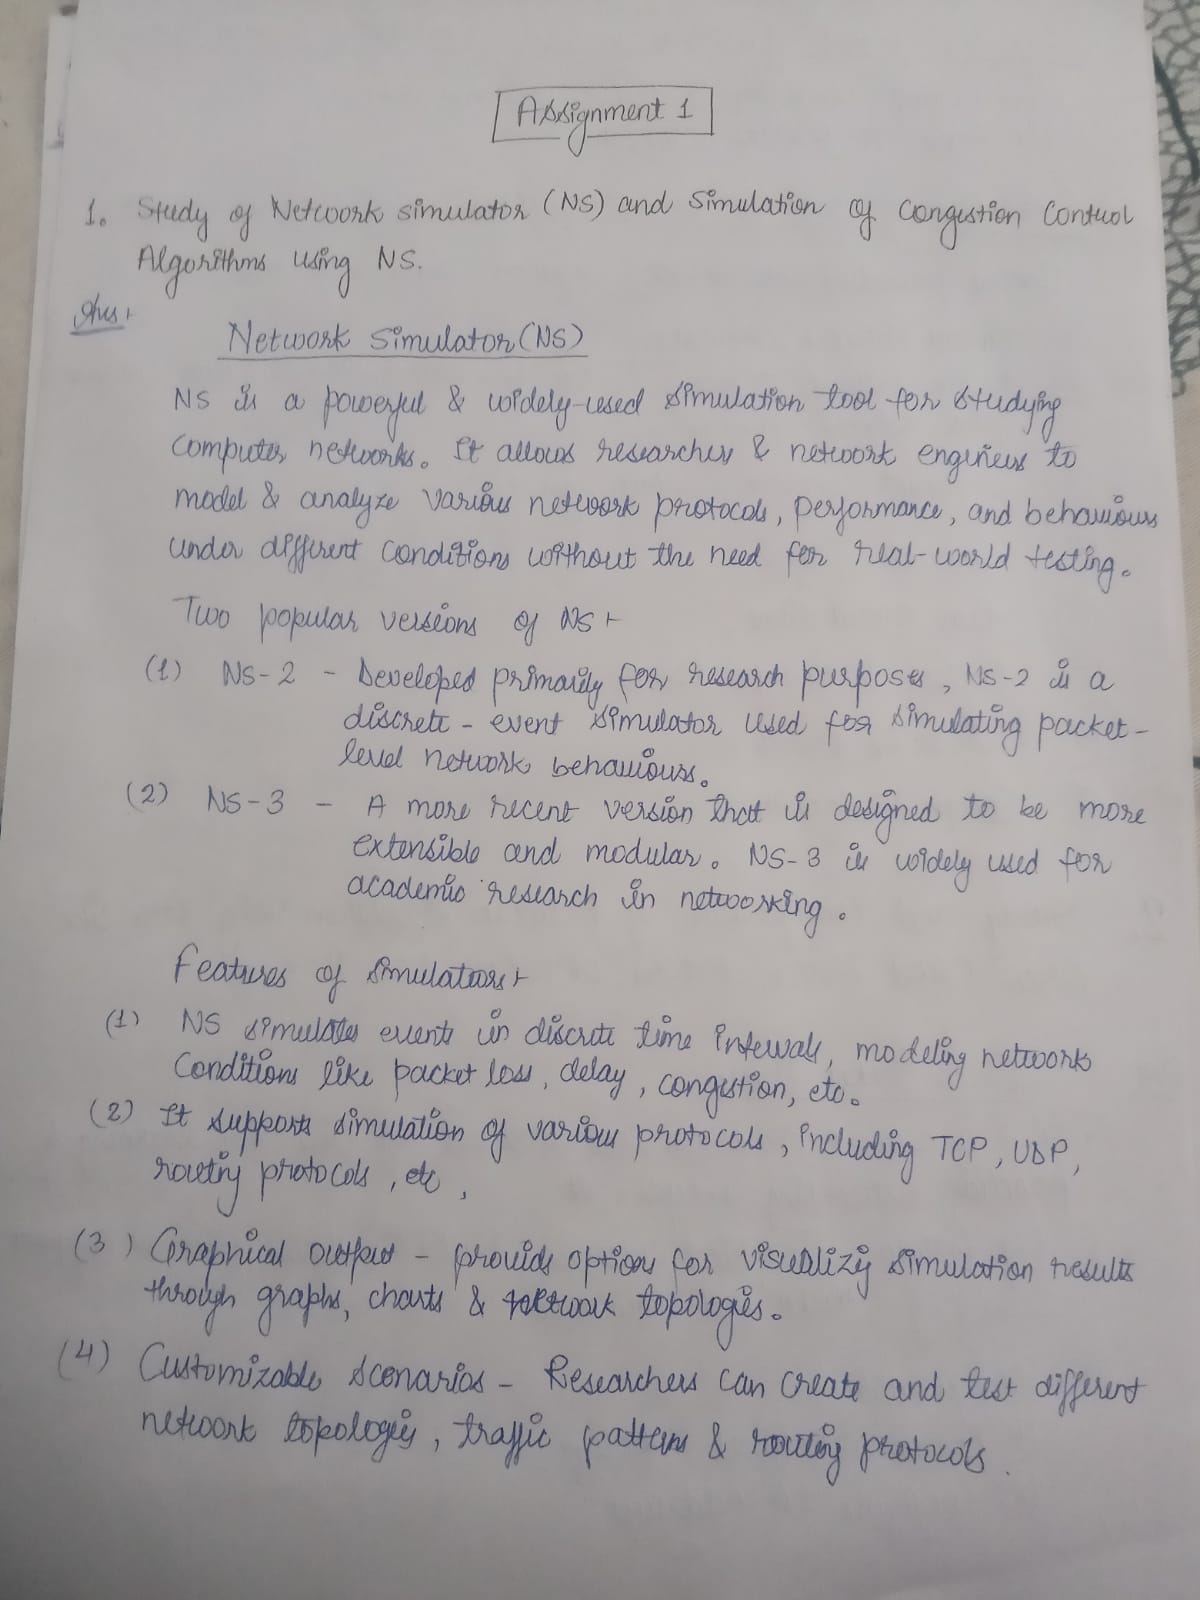 Assignment 1
1. Study of Network Simulator (NS) and Simulation of Congestion Control
Algorithms using NS.
Ans:
Network Simulator (NS)
NS is a powerful & widely-used simulation tool for studying
computer networks. It allows researchers & network engineers to
model & analyze various network protocols, performance, and behaviours
under different conditions without the need for real-world testing.
Two popular versions of NS:
(1) NS-2 - Developed primarily for research purposes, NS-2 is a
discrete-event simulator used for simulating packet-
level network behaviours.
(2) NS-3 - A more recent version that is designed to be more
extensible and modular. NS-3 is widely used for
academic research in networking.
Features of Simulators:
(1) NS simulates events in discrete time intervals, modeling network
Conditions like packet loss, delay, congestion, etc.
(2) It supports simulation of various protocols, including TCP, UDP,
routing protocols, etc.
(3) Graphical output - provids options for visualizing simulation results
through graphs, charts & network topologies.
(4) Customizable Scenarios - Researchers can create and test different
network topologies, traffic patterns & routing protocols.